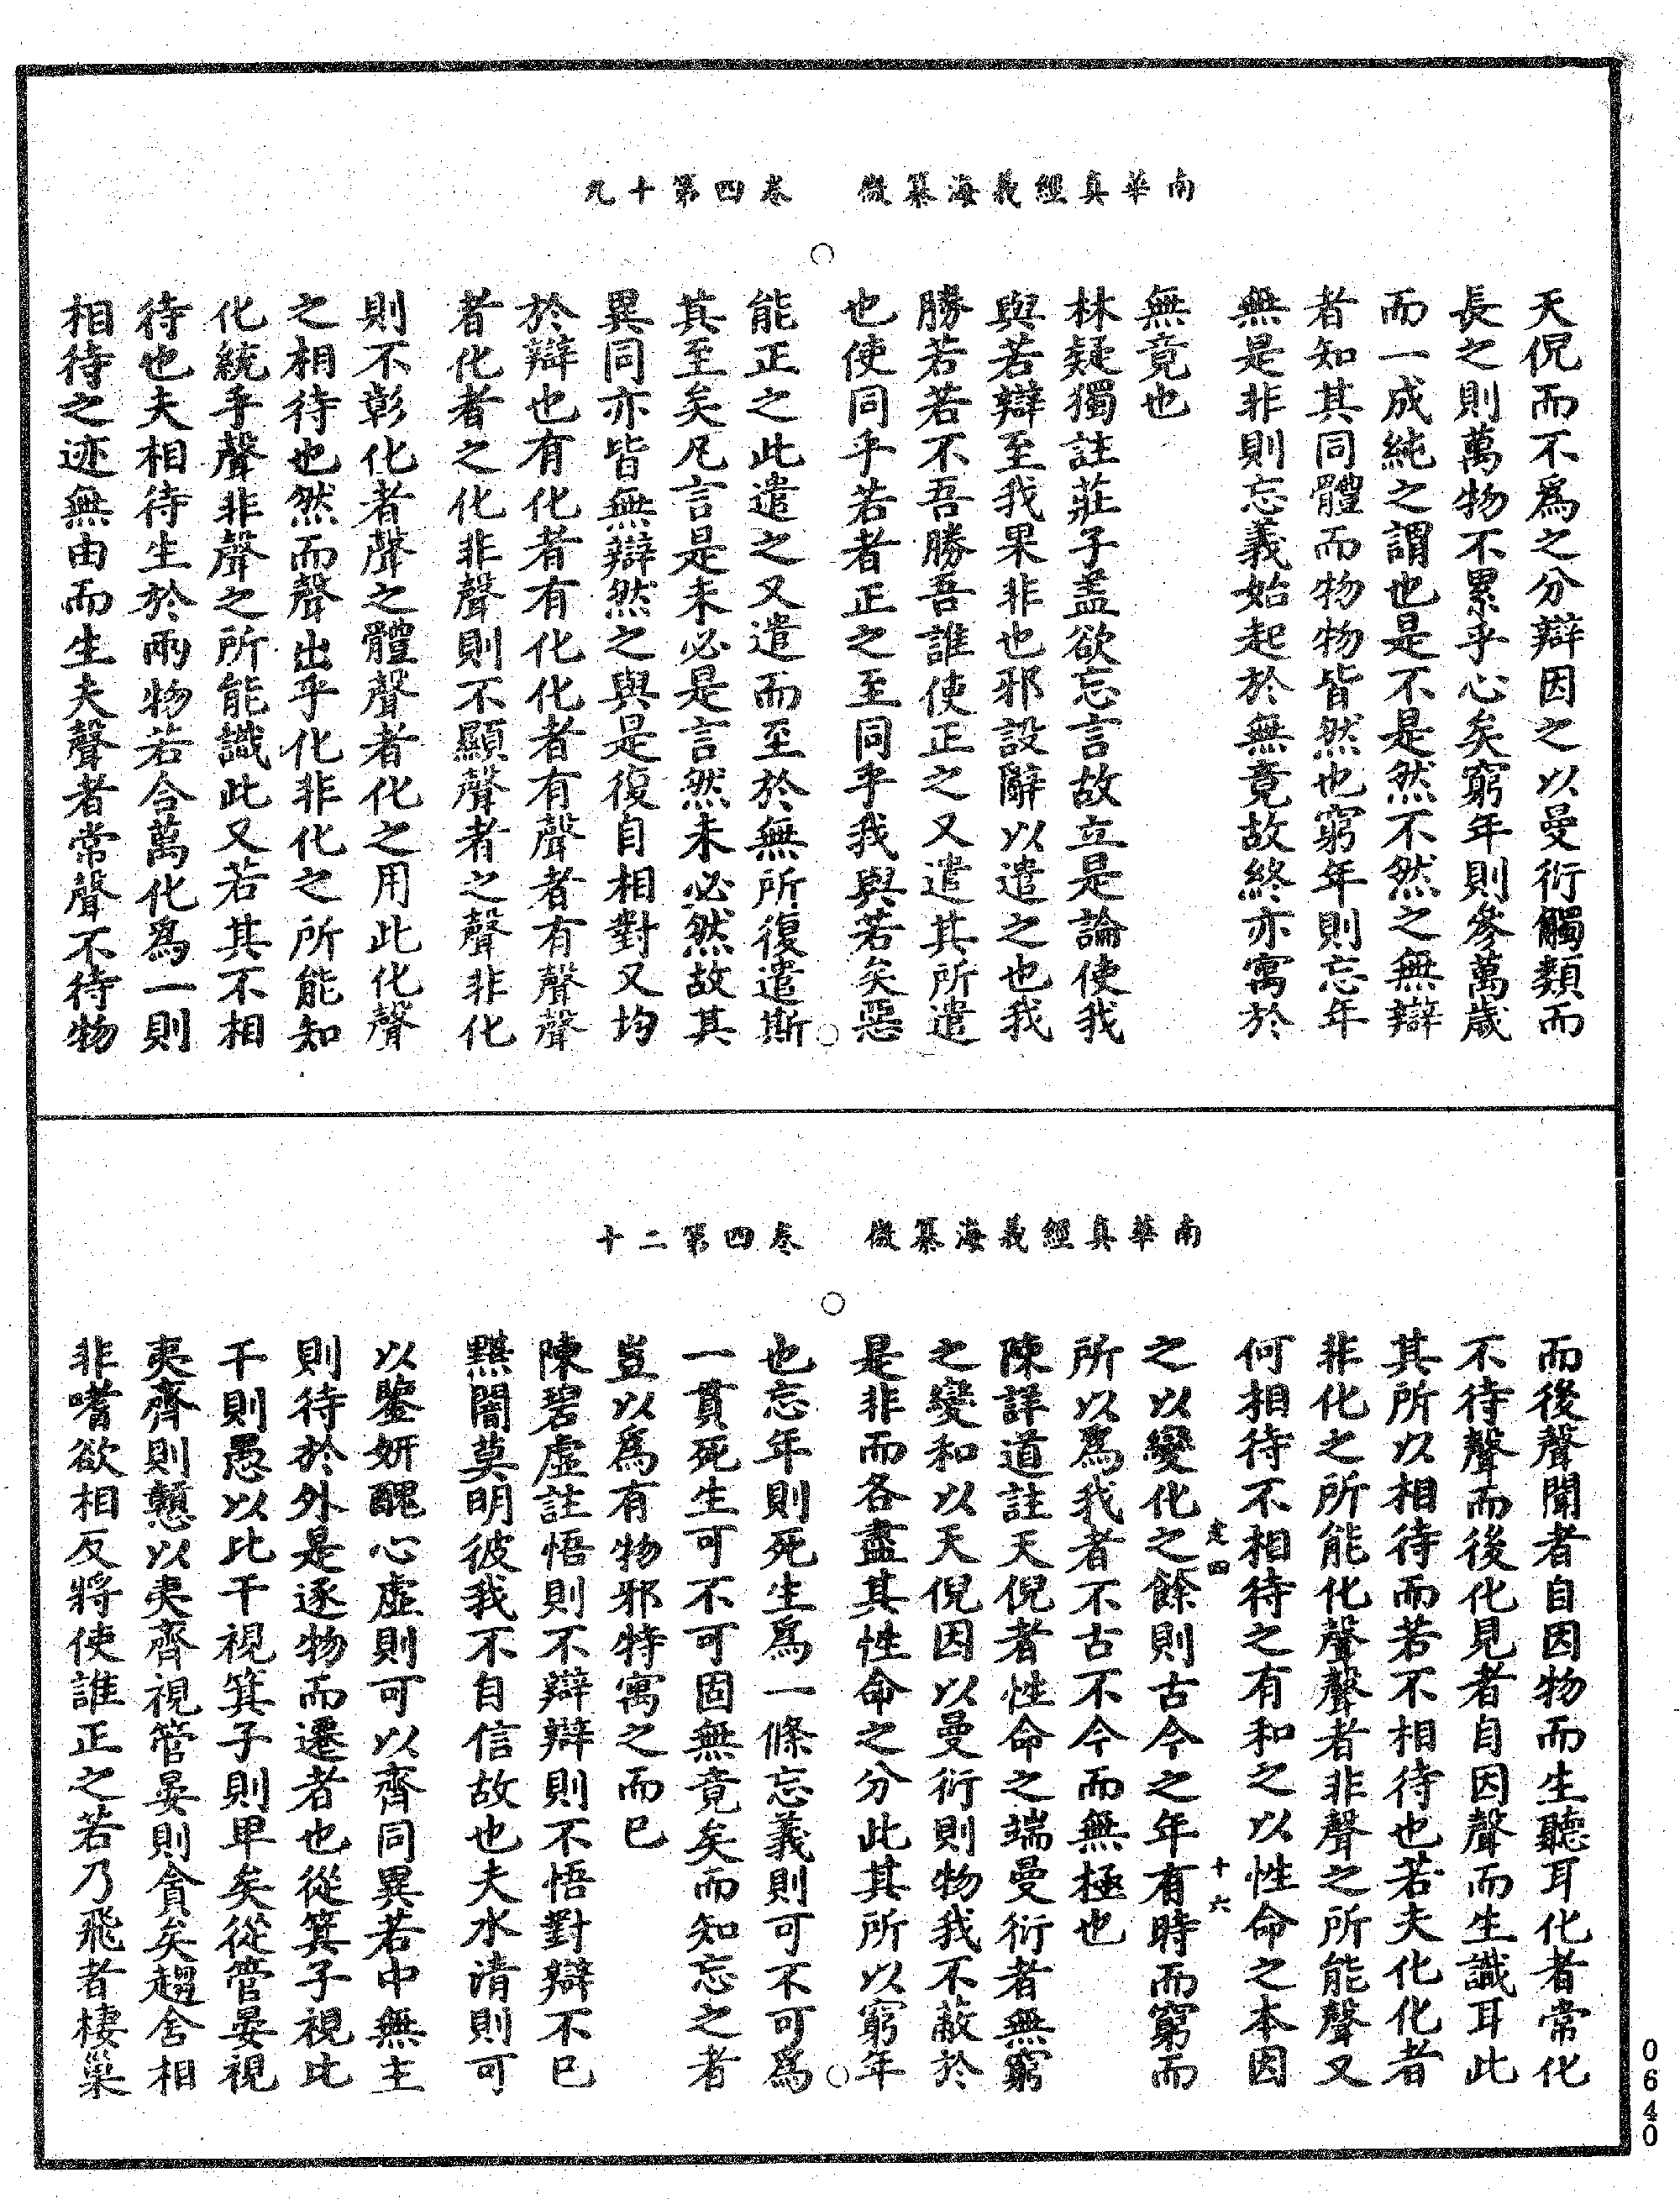 南華真經義海纂微　卷四第十九
天倪而不為之分辯因之以曼衍觸類而
長之則萬物不累乎心矣窮年則參萬歲
而一成純之謂也是不是然不然之無辯
者知其同體而物物皆然也窮年則忘年
無是非則忘義始起於無竟故終亦寓於
無竟也
林疑獨註莊子盖欲忘言故立是論使我
與若辯至我果非也邪設辭以遣之也我
勝若若不吾勝吾誰使正之又遣其所遣
也使同乎若者正之至同乎我與若矣惡
能正之此遣之又遣而至於無所復遣斯
其至矣凡言是未必是言然未必然故其
異同亦皆無辯然之與是復自相對又均
於辯也有化者有化化者有聲者有聲聲
者化者之化非聲則不顯聲者之聲非化
則不彰化者聲之體聲者化之用此化聲
之相待也然而聲出乎化非化之所能知
化統乎聲非聲之所能識此又若其不相
待也夫相待生於兩物若合萬化為一則
相待之迹無由而生夫聲者常聲不待物
南華真經義海纂微　卷四第二十
而後聲聞者自因物而生聽耳化者常化
不待聲而後化見者自因聲而生識耳此
其所以相待而若不相待也若夫化化者
非化之所能化聲聲者非聲之所能聲又
何相待不相待之有和之以性命之本因
之以變化之餘則古今之年有時而窮而
所以為我者不古不今而無極也
陳詳道註天倪者性命之端曼衍者無窮
之變和以天倪因以曼衍則物我不蔽於
是非而各盡其性命之分此其所以窮年
也忘年則死生為一條忘義則可不可為
一貫死生可不可固無竟矣而知忘之者
豈以為有物邪特寓之而已
陳碧虛註悟則不辯辯則不悟對辯不已
黮闇莫明彼我不自信故也夫水清則可
以鑒妍醜心虛則可以齊同異若中無主
則待於外是逐物而遷者也從箕子視比
干則愚以比干視箕子則卑矣從管晏視
夷齊則戇以夷齊視管晏則貪矣趨舍相
非嗜欲相反將使誰正之若乃飛者棲巢
十六
0640